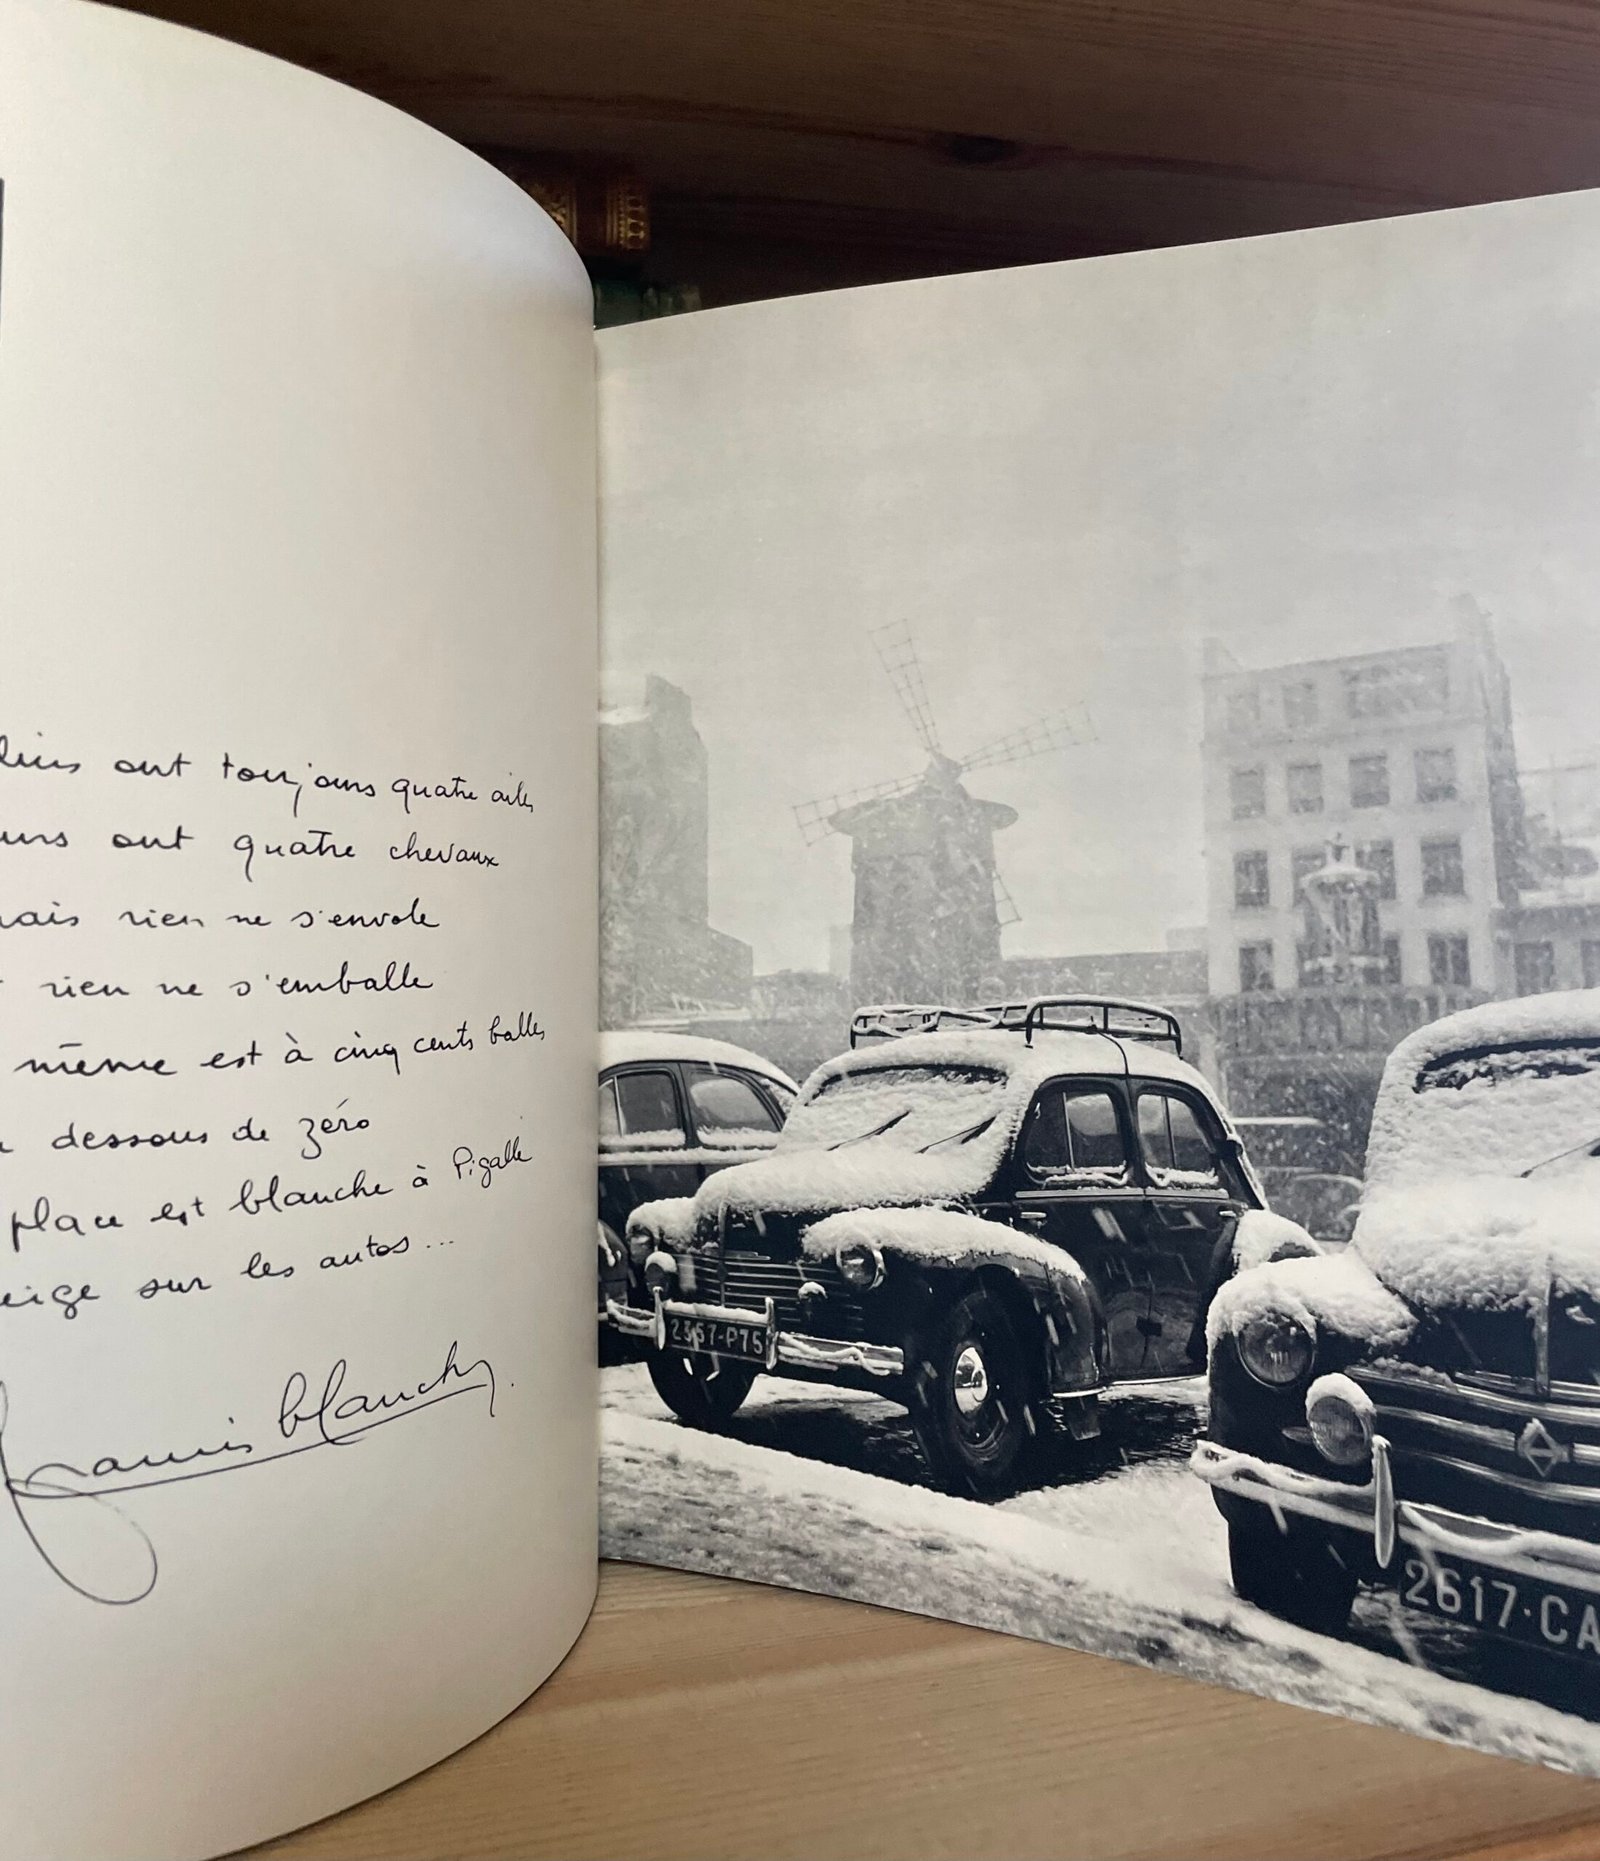 ont toujours quatre ailes
ont quatre chevaux
rien ne s'envole
rien ne s'emballe
même est à cinq cents balles
dessous de zéro
place est blanche à Pigalle
sur les autos...
Francis Blanche.
2357-P75
2617·CA